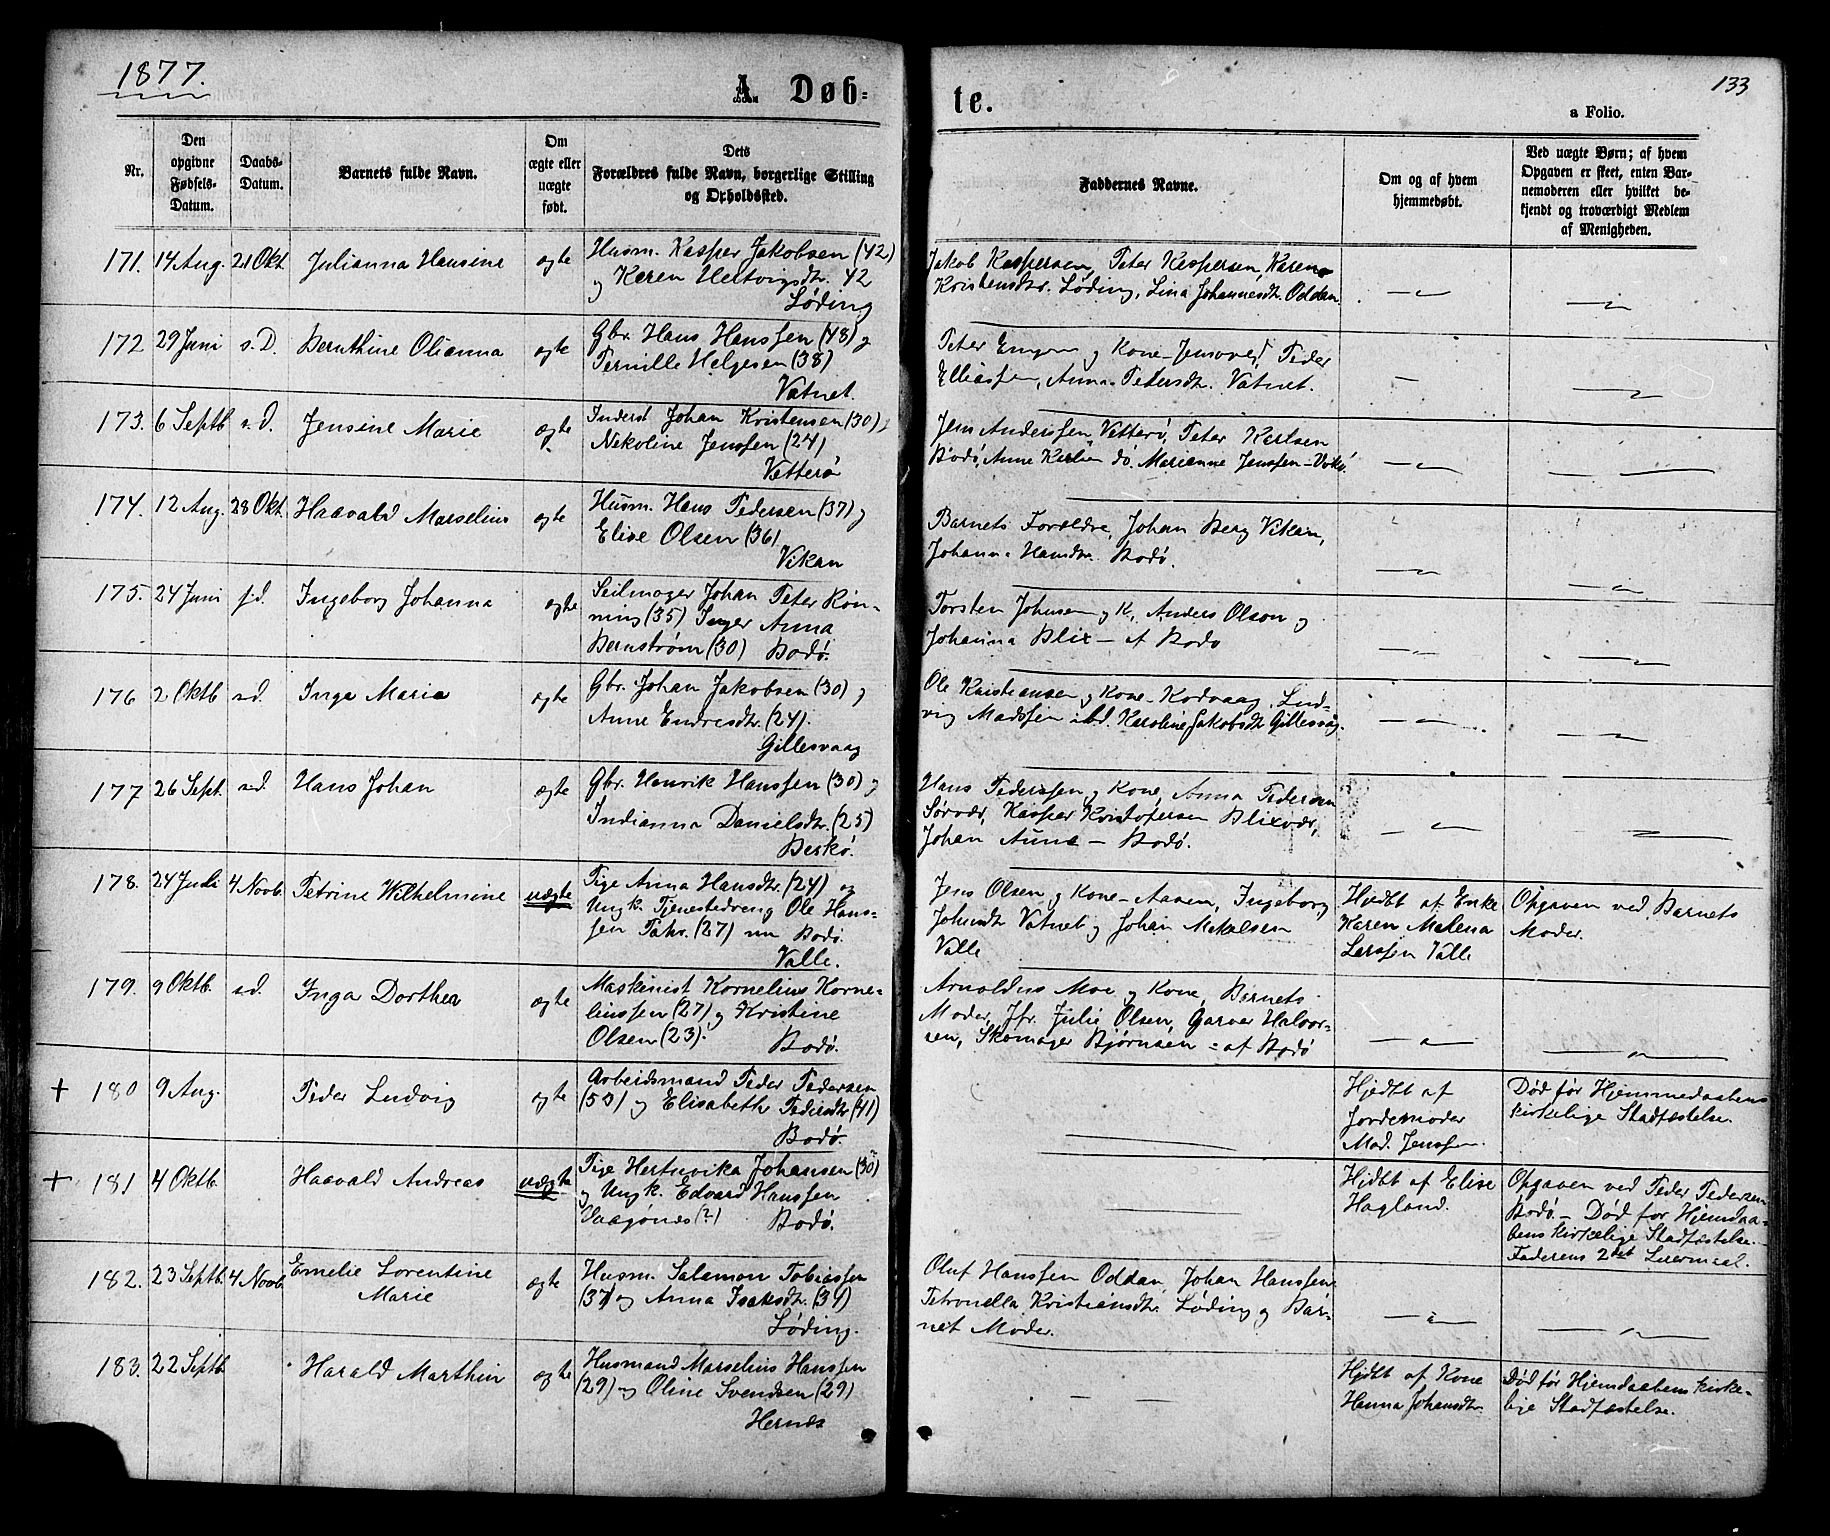 1877.
A. Døb-
te.
133
a Folio.
Nr.
Den
opgivne
Fødsels-
Datum.
Daabs-
Datum.
Barnets fulde Navn.
Om
ægte eller
uægte
født.
Dets
Forældres fulde Navn, borgerlige Stilling
og Opholdssted.
Faddernes Navne.
Om og af hvem
hjemmedøbt.
Ved uægte Børn; af hvem
Opgaven er skeet, enten Bar-
nemoderen eller hvilket be-
kjendt og troværdigt Medlem
af Menigheden.
171. 14 Aug. 21 Okt. Julianna Hansine ægte
Husm. Kasper Jakobsen (42)
og Karen Hertvigsdtr. 42
Løding
Jakob Kaspersen, Peter Kaspersen, Karen
Kristensdtr. Løding, Lina Johannesdtr. Oddan
172 29 Juni s.D. Bernthine Olianna ægte
Gbr. Hans Hanssen (48) og
Pernille Helgesen (38)
Vatnet.
Peter og Kone Peder
Elliassen, Anna Pedersdtr. Vatnet.
173. 6 Septb s.d. Jensine Marie ægte
Inderst Johan Kristensen (30) og
Nekoline Jenssen (24)
Vetterø
Jens Anderssen Vetterø, Peter Karlsen
Bodø, Anne Karlsen do. Marianne Jenssen
174. 12 Aug. 28 Okt. Haavald Marselius ægte
Husm. Hans Pedersen (37) og
Elise Olsen (36)
Vikan
Barnets Forældre, Johan Berg Vikan,
Johanna Hansdtr. Bodø.
175. 24 Juni s.d. Ingeborg Johanna ægte
Seilmager Johan Peter Røn-
ning (35) Inger Anna
Bernstrøm (30) Bodø.
Torsten Johnsen og K., Anders Olson og
Johanna Blix - af Bodø
176 2 Oktb s.d. Inga Maria ægte
Gbr. Johan Jakobsen (30) og
Anne Endresdtr. (24).
Gillesvaag
Ole Kristiansen og Kone - Kodvaag, Lud-
vig Madssen ibd. Karoline Jakobsdtr Gillesvåg.
177 26 Sept. s.d. Hans Johan ægte
Gbr. Henrik Hanssen (30) og
Indianna Danielsdtr. (25)
Beskø.
Hans Pederssen og Kone, Anna Pedersen
Sørvær, Kasper Kristofersen Blixvær,
Johan Aune - Bodø.
178. 24 Juli 4 Novb. Petrine Wilhelmine uægte
Pige Anna Hansdtr. (24) og
Ungk. Tjenestedreng Ole Hans-
sen (27) nu Bodø.
Valle.
Jens Olsen og Kone - Aasen, Ingeborg
Johnsdtr Vatnet og Johan Mekalsen
Valle
Hjdbt af Enke
Karen Malena
Larssen Valle
Opgaven ved Barnets
Moder.
179. 9 Oktb. s.d. Inga Dorthea ægte
Maskinist Kornelius Korne-
liussen (27) og Kristine
Olsen (23).
Bodø.
Arnoldus Moe og Kone, Barnets
Moder, Jfr. Julie Olsen, Garver Halvor-
sen, Skomager Bjørnsen - af Bodø
+ 180 9 Aug. Peder Ludvig ægte
Arbeidsmand Peder Pedersen
(50) og Elisabeth Pedersdtr (41)
Bodø.
Hjdbt af
Jordemoder
Mad. Jenssen.
Død før Hjemmedaabens
kirkelige Stadfæstelse.
+ 181 4 Oktb. Haavald Andreas uægte
Pige Hertuvika Johansen (30)
og Ungk. Edvard Hanssen
Saagønes (?) Bodø.
Hjdbt af Elise
Hagland.
Opgaven ved Peder Pedersen
Bodø. - Død før Hjemdaa-
bens kirkelige Stadfæstelse.
Faderens 2det Leiermaal.
182. 23 Septb. 4 Novb. Emelie Lorentine
Marie
ægte
Husm. Salamon Tobiassen
(37) og Anna Isaksdtr. (34)
Løding.
Oluf Hanssen Oddan, Johan Hanssen,
Petronella Kristiansdtr. Løding og Bar-
net Moder.
183. 22 Septb. Harald Marthin ægte
Husmand Marselius Hanssen
(29) og Oline Svendsen (29)
Hernes
Hjdbt af Kone
Hanna Johansdtr.
Død før Hjemdaabens kirke-
lige Stadfæstelse.